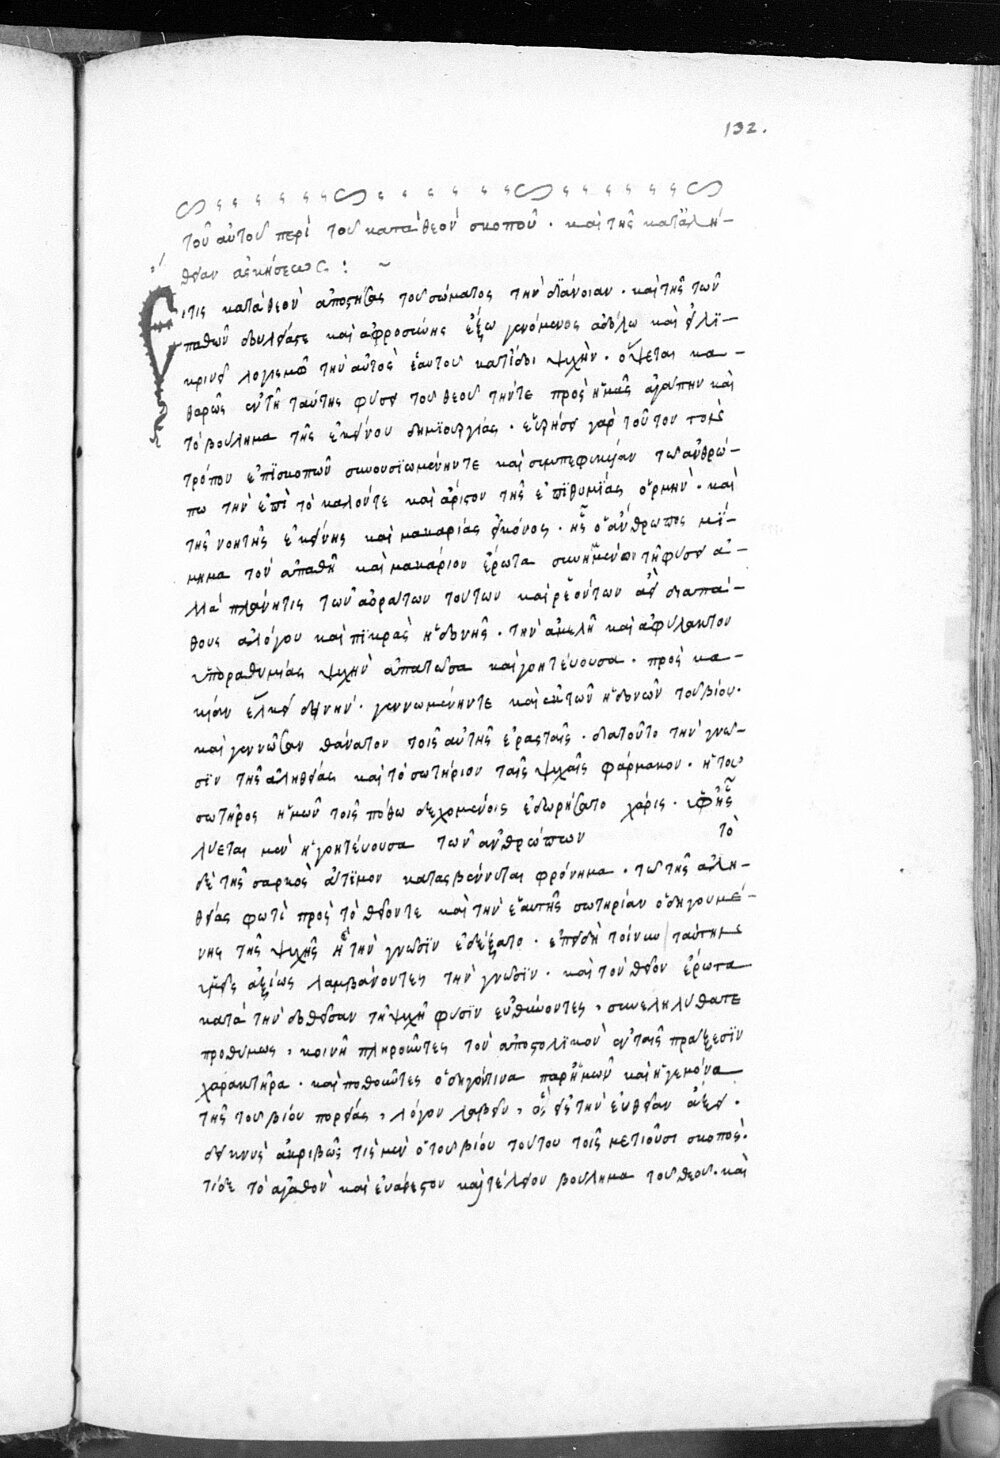 132.
τοῦ αὐτοῦ περὶ τοῦ κατὰ θεὸν σκοποῦ · καὶ τῆς κατἀλή-
θειαν ἀσκήσεως : ~
Εἴτις κατὰ θεὸν ἀποστήσας τοῦ σώματος τὴν διάνοιαν · καὶ τῆς τῶν
παθῶν δουλείας καὶ ἀφροσύνης ἔξω γενόμενος ἀδόλω καὶ εἰλϊ-
κρινεῖ λογισμῶ τὴν αὐτὸς ἑαυτοῦ κατίδοι ψυχὴν · ὄψεται κα-
θαρῶς ἐν τῆ ταύτης φύσει τοῦ θεοῦ τήντε πρὸς ἡμᾶς ἀγάπην καὶ
τὸ βούλημα τῆς ἐκείνου δημϊουργίας · εὑρήσει γὰρ τοῦτον τὸν
τρόπον ἐπισκοπῶν συνουσϊωμένηντε καὶ συμπεφυκυῖαν τῶ ἀνθρώ-
πω τὴν ἐπὶ τὸ καλόντε καὶ ἄριστον τῆς ἐπϊθυμίας ὁρμὴν · καὶ
τῆς νοητῆς ἐκείνης καὶ μακαρίας εἰκόνος · ἧς ὁ ἄνθρωπος μί-
μημα τὸν ἀπαθῆ καὶ μακάριον ἔρωτα συνημμένον τῆ φύσει ἀλ-
λὰ πλάνητις τῶν ὁρατῶν τούτων καὶ ῥεόντων ἀεὶ διὰ πά-
θους ἀλόγου καὶ πϊκρᾶς ἡδονῆς · τὴν ἀμελῆ καὶ ἀφύλακτον
ὑπὸ ῥαθυμίας ψυχὴν ἀπατῶσα καὶ γοητεύουσα · πρὸς κα-
κίαν ἕλκει δεινὴν · γεννωμένηντε καὶ ἐκ τῶν ἡδονῶν τοῦ βίου ·
καὶ γεννῶσαν θάνατον τοῖς αὐτῆς ἐρασταῖς · διατοῦτο τὴν γνῶ-
σϊν τῆς ἀληθείας καὶ τὸ σωτήριον ταῖς ψυχαῖς φάρμακον · ἡ τοῦ
σωτῆρος ἡμῶν τοῖς πόθω δεχομένοις ἐδωρήσατο χάρις · ὑφ' ἧς
λύεται μὲν ἡ γοητεύουσα τῶν ἀνθρώπων τὸ
δὲ τῆς σαρκὸς ἄτϊμον κατασβέννυται φρόνημα · τῶ τῆς ἀλη-
θείας φωτὶ πρὸς τὸ θεῖόντε καὶ τὴν ἑαυτῆς σωτηρίαν ὁδηγουμέ-
νης τῆς ψυχῆς ἣ τὴν γνῶσϊν ἐδέξατο · ἐπειδὴ τοίνυν ταύτην
ὑμεῖς ἀξίως λαμβάνοντες τὴν γνῶσϊν · καὶ τὸν θεῖον ἔρωτα
κατὰ τὴν δοθεῖσαν τῆ ψυχῆ φύσϊν εὐθύνοντες, συνεληλύθατε
προθύμως, κοινῆ πληροῦντες τὸν ἀποστολϊκὸν ἐν ταῖς πράξεσϊν
χαρακτῆρα · καὶ ποθοῦντες ὁδηγόντινα παρ' ἡμῶν καὶ ἡγεμόνα
τῆς τοῦ βίου πορείας, λόγον λαβεῖν, ὃς εἰς τὴν εὐθεῖαν ἄξει ·
δεικνὺς ἀκριβῶς τίς μὲν ὁ τοῦ βίου τούτου τοῖς μετιοῦσι σκοπός ·
τίδε τὸ ἀγαθὸν καὶ εὐάρεστον καὶ τέλειον βούλημα τοῦ θεοῦ · καὶ